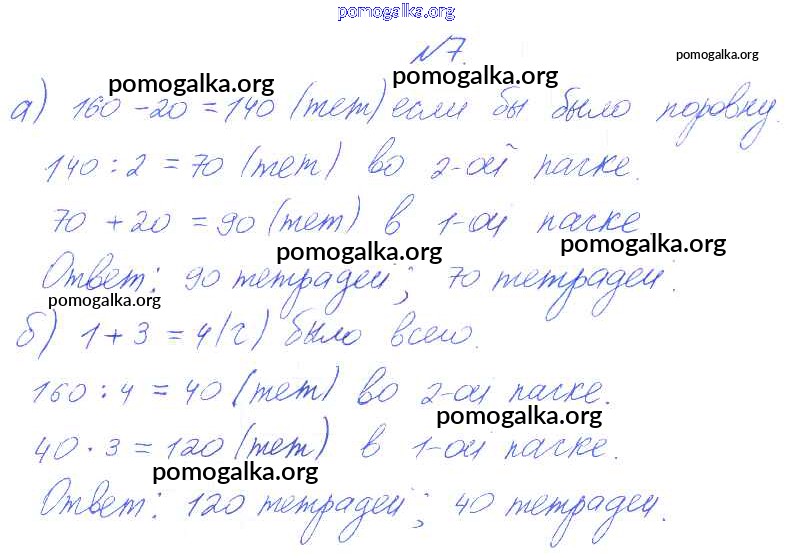 pomogalka.org
№7.
pomogalka.org
pomogalka.org pomogalka.org
а) 160 - 20 = 140 (тет) если бы было поровну.
140 : 2 = 70 (тет) во 2-ой пачке.
70 + 20 = 90 (тет) в 1-ой пачке
pomogalka.org pomogalka.org
Ответ: 90 тетрадей; 70 тетрадей.
pomogalka.org
б) 1 + 3 = 4 (ч) было всего.
160 : 4 = 40 (тет) во 2-ой пачке.
pomogalka.org
40 · 3 = 120 (тет) в 1-ой пачке.
pomogalka.org
Ответ: 120 тетрадей; 40 тетрадей.